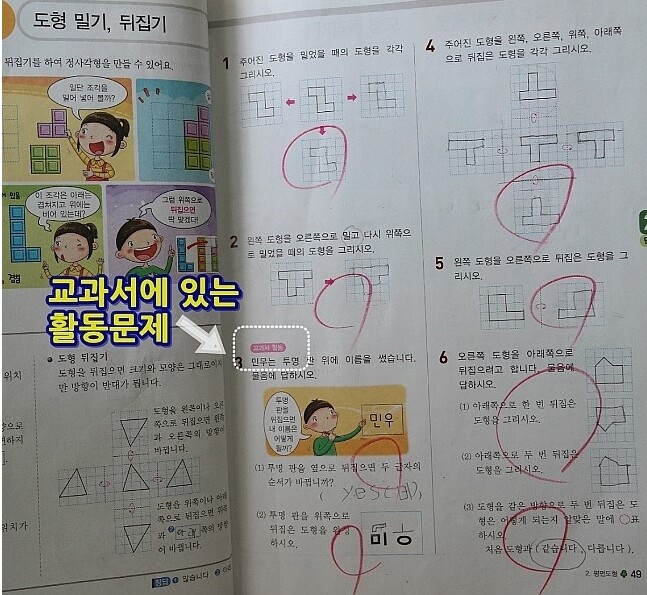 도형 밀기, 뒤집기
뒤집기를 하여 정사각형을 만들 수 있어요.
일단 조각을
밀어 넣어 볼까?
이 조각은 아래는
겹쳐지고 위에는
비어 있는데?
그럼 위쪽으로
뒤집으면
딱 맞겠다!
교과서에 있는
활동문제
도형 뒤집기
도형을 뒤집으면 크기와 모양은 그대로이지
만 방향이 반대가 됩니다.
도형을 왼쪽이나 오른
쪽으로 뒤집으면 왼쪽
과 오른쪽의 방향이
바뀝니다.
도형을 위쪽이나 아래
쪽으로 뒤집으면 위쪽
쪽의 방향
이 바뀝니다.
정답 1 많습니다 2
1 주어진 도형을 밀었을 때의 도형을 각각
그리시오.
2 왼쪽 도형을 오른쪽으로 밀고 다시 위쪽으
로 밀었을 때의 도형을 그리시오.
교과서 활동
3 민우는 투명 판 위에 이름을 썼습니다.
물음에 답하시오.
투명
판을
뒤집으면
내 이름은
어떻게
될까?
민우
(1) 투명 판을 옆으로 뒤집으면 두 글자의
순서가 바뀝니까?
( yes(예) )
(2) 투명 판을 위쪽으로
뒤집은 도형을 완성
하시오.
4 주어진 도형을 왼쪽, 오른쪽, 위쪽, 아래쪽
으로 뒤집은 도형을 각각 그리시오.
5 왼쪽 도형을 오른쪽으로 뒤집은 도형을 그
리시오.
6 오른쪽 도형을 아래쪽으로
뒤집으려고 합니다. 물음에
답하시오.
(1) 아래쪽으로 한 번 뒤집은
도형을 그리시오.
(2) 아래쪽으로 두 번 뒤집은
도형을 그리시오.
(3) 도형을 같은 방향으로 두 번 뒤집은 도
형은 어떻게 되는지 알맞은 말에 ○표
하시오.
처음 도형과 ( 같습니다 , 다릅니다 ).
2. 평면도형 49